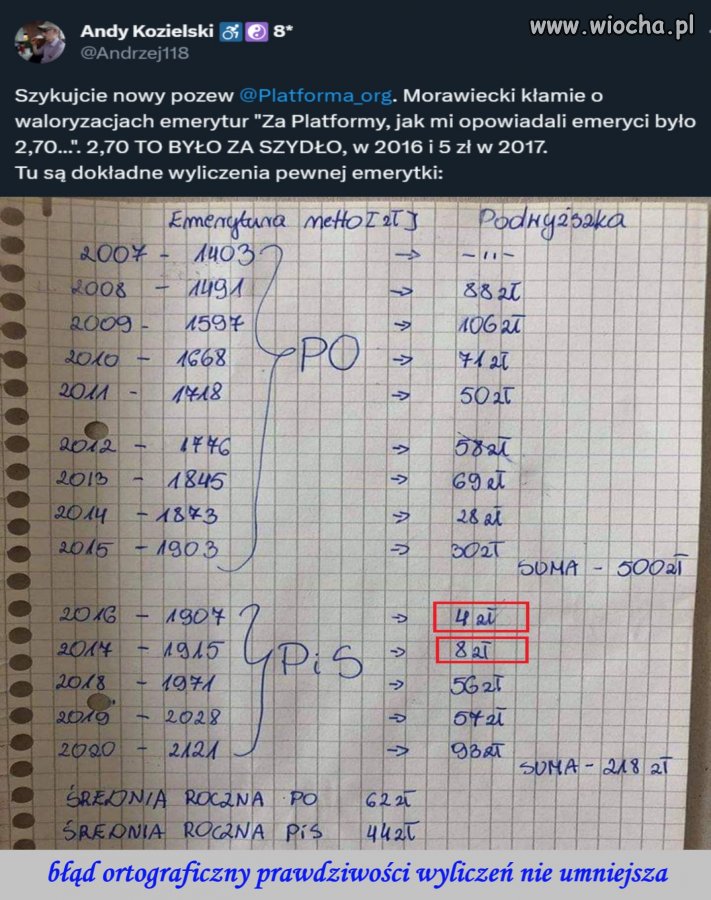 www.wiocha.pl
Andy Kozielski ♿☯️ 8*
@Andrzej118
Szykujcie nowy pozew @Platforma_org. Morawiecki kłamie o
waloryzacjach emerytur "Za Platformy, jak mi opowiadali emeryci było
2,70...". 2,70 TO BYŁO ZA SZYDŁO, w 2016 i 5 zł w 2017.
Tu są dokładne wyliczenia pewnej emerytki:
Emerytura netto [zł] Podwyższka
2007 - 1403 → - " -
2008 - 1491 → 88 zł
2009 - 1597 → 106 zł
2010 - 1668 → 71 zł
PO
2011 - 1718 → 50 zł
2012 - 1776 → 58 zł
2013 - 1845 → 69 zł
2014 - 1873 → 28 zł
2015 - 1903 → 30 zł
SUMA - 500 zł
2016 - 1907 → 4 zł
2017 - 1915 → 8 zł
PiS
2018 - 1971 → 56 zł
2019 - 2028 → 57 zł
2020 - 2121 → 93 zł
SUMA - 218 zł
ŚREDNIA ROCZNA PO 62 zł
ŚREDNIA ROCZNA PiS 44 zł
błąd ortograficzny prawdziwości wyliczeń nie umniejsza